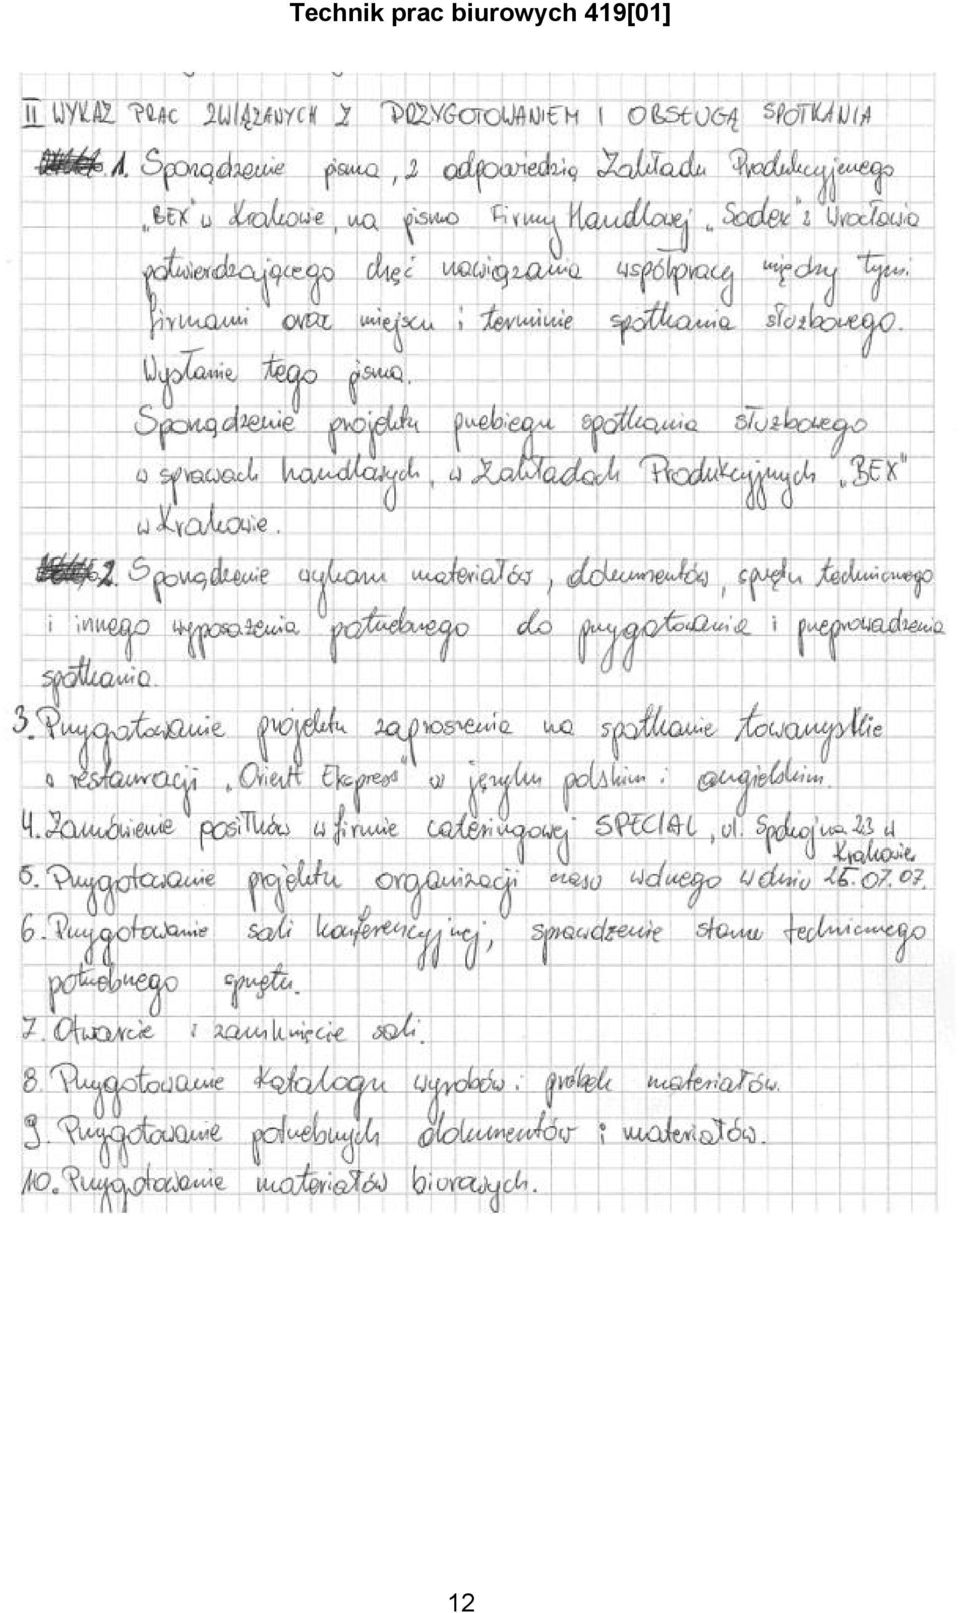 Technik prac biurowych 419[01]
II WYKAZ PRAC ZWIĄZANYCH Z PRZYGOTOWANIEM I OBSŁUGĄ SPOTKANIA
1. Sporządzenie pisma, z odpowiedzią Zakładu Produkcyjnego
„BEX" w Krakowie, na pismo Firmy Handlowej „Sadex" z Wrocławia
potwierdzającego chęć nawiązania współpracy między tymi
firmami oraz miejscu i terminie spotkania służbowego.
Wysłanie tego pisma.
Sporządzenie projektu przebiegu spotkania służbowego
w sprawach handlowych, w Zakładach Produkcyjnych „BEX"
w Krakowie.
2. Sporządzenie wykazu materiałów, dokumentów, sprzętu technicznego
i innego wyposażenia potrzebnego do przygotowania i przeprowadzenia
spotkania.
3. Przygotowanie projektu zaproszenia na spotkanie towarzyskie
w restauracji „Orient Ekspress" w języku polskim i angielskim.
4. Zamówienie posiłków w firmie cateringowej SPECIAL, ul. Spokojna 23 w
Krakowie
5. Przygotowanie projektu organizacji czasu wolnego w dniu 25.07.07.
6. Przygotowanie sali konferencyjnej, sprawdzenie stanu technicznego
potrzebnego sprzętu.
7. Otwarcie i zamknięcie sali.
8. Przygotowanie katalogu wyrobów i próbek materiałów.
9. Przygotowanie potrzebnych dokumentów i materiałów.
10. Przygotowanie materiałów biurowych.
12